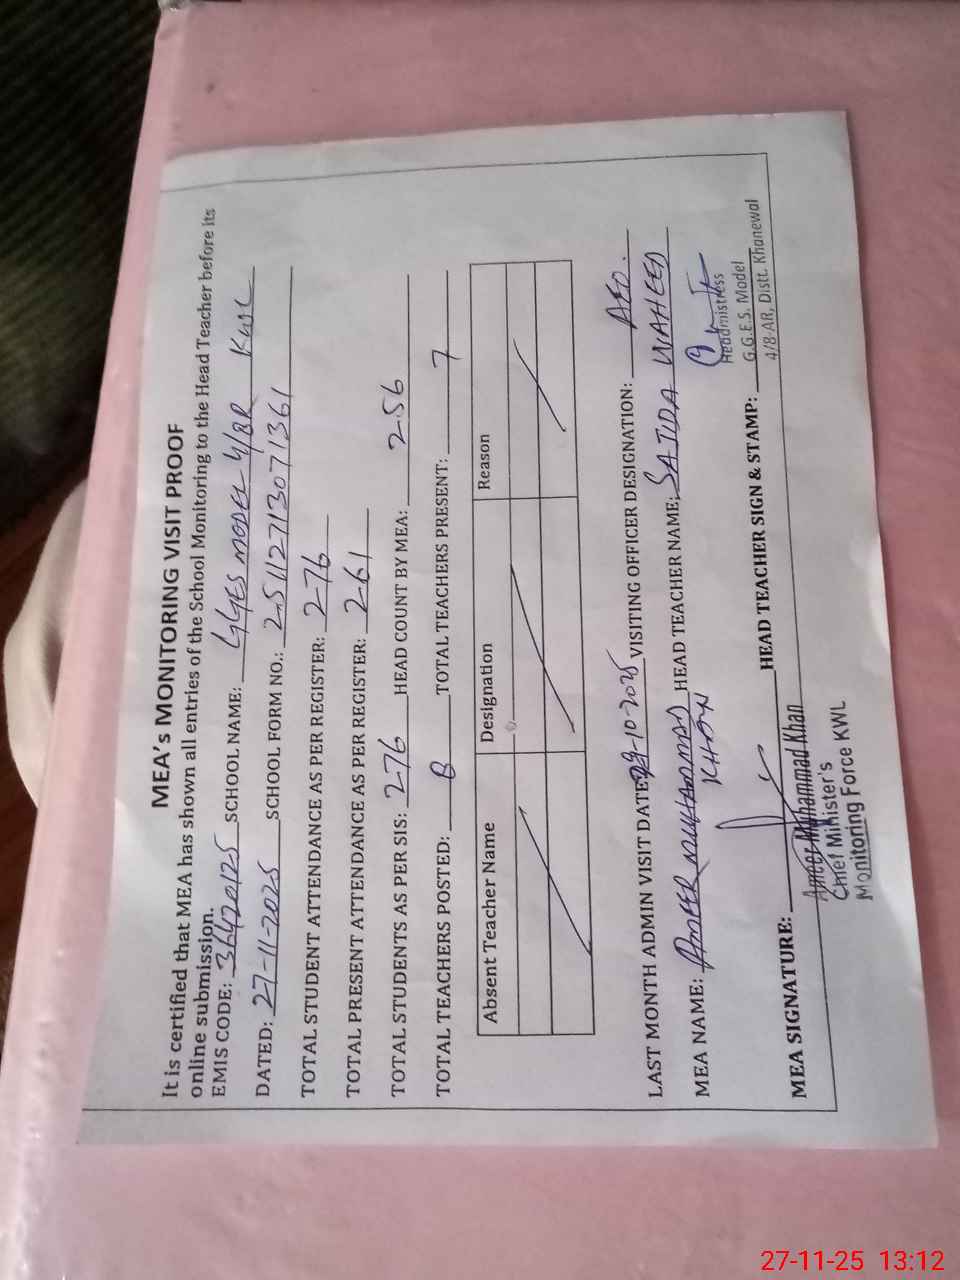 MEA's MONITORING VISIT PROOF
It is certified that MEA has shown all entries of the School Monitoring to the Head Teacher before its
online submission.
EMIS CODE: 36420125 SCHOOL NAME: GGES MODEL 4/8R KWL
DATED: 27-11-2025 SCHOOL FORM NO.: 251127130713 61
TOTAL STUDENT ATTENDANCE AS PER REGISTER: 276
TOTAL PRESENT ATTENDANCE AS PER REGISTER: 261
TOTAL STUDENTS AS PER SIS: 276 HEAD COUNT BY MEA: 256
TOTAL TEACHERS POSTED: 8 TOTAL TEACHERS PRESENT: 7
Absent Teacher Name Designation Reason
LAST MONTH ADMIN VISIT DATE 29-10-2025 VISITING OFFICER DESIGNATION: AEO.
MEA NAME: AMEER MUHAMMAD KHAN HEAD TEACHER NAME: SAJIDA WAHEED
MEA SIGNATURE: HEAD TEACHER SIGN & STAMP:
Ameer Muhammad Khan
Chief Minister's
Monitoring Force KWL
Headmistress
G.G.E.S. Model
4/8-AR, Distt. Khanewal
27-11-25 13:12